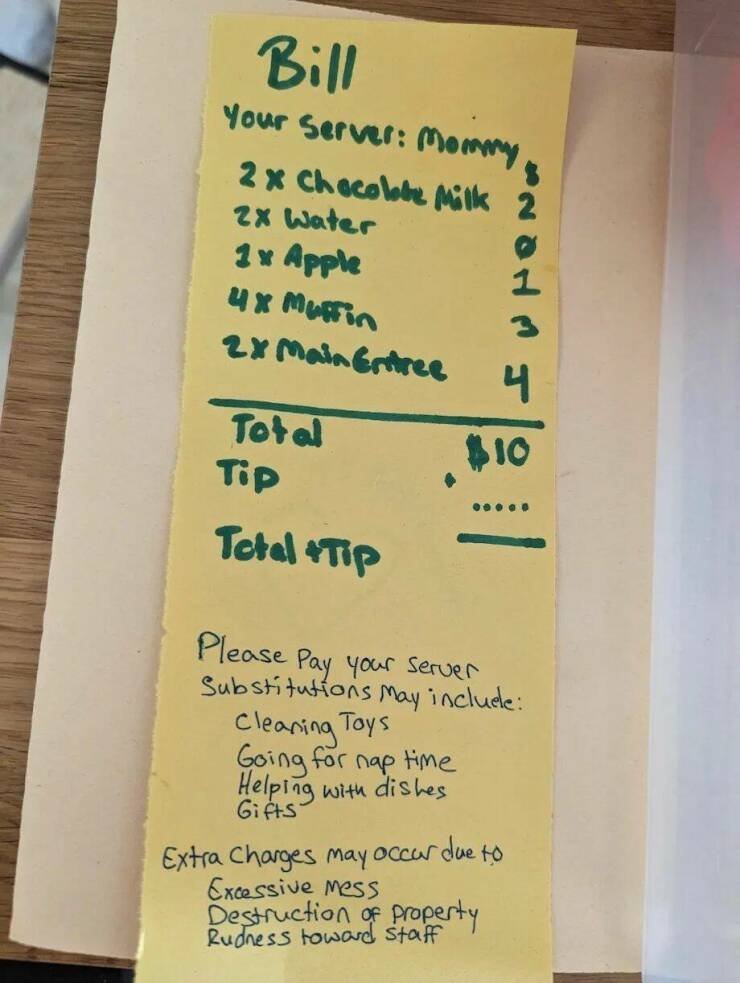 Bill
Your Server: Mommy
$
2x Chocolate Milk 2
2x Water 0
1x Apple 1
4x Muffin 3
2x Main Entree 4
Total $10
Tip .....
Total + Tip
Please Pay your server
Substitutions May include:
Cleaning Toys
Going for nap time
Helping with dishes
Gifts
Extra Charges may occur due to
Excessive Mess
Destruction of property
Rudness toward staff